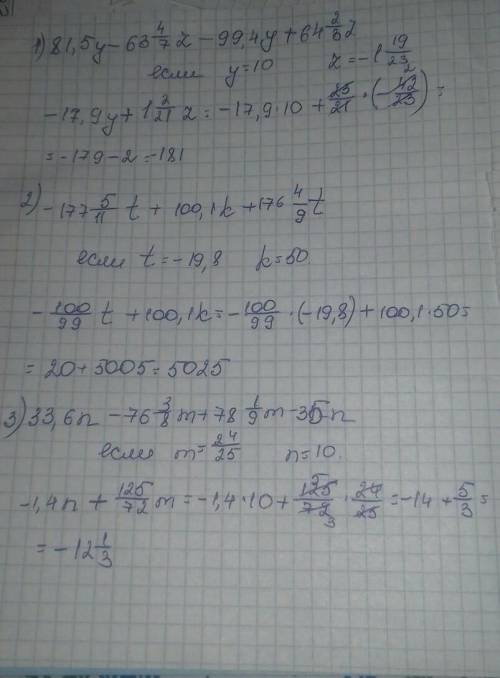 1) 81,5y - 63 4/7 z - 99,4y + 64 2/3 z
если y=10 z = -1 19/23
-17,9y + 1 2/21 z = -17,9·10 + 23/21 · (-42/23) =
= -179 - 2 = -181
2) -177 5/11 t + 100,1k + 176 4/9 t
если t = -19,8 k=50
-100/99 t + 100,1k = -100/99 · (-19,8) + 100,1·50 =
= 20 + 5005 = 5025
3) 33,6n - 76 3/8 m + 78 1/9 m - 35n
если m = 24/25 n=10.
-1,4n + 125/72 m = -1,4·10 + 125/72 · 24/25 = -14 + 5/3 =
= -12 1/3